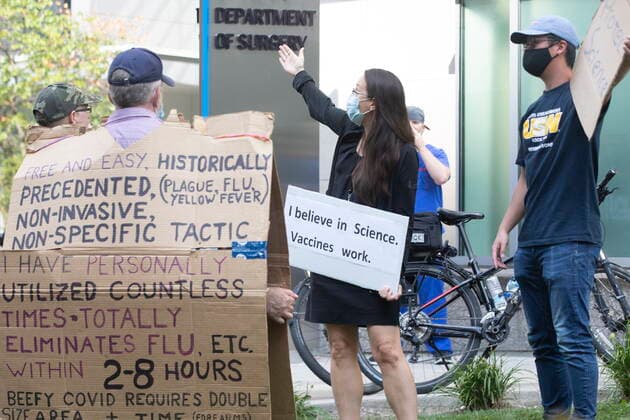 DEPARTMENT
OF SURGERY
FREE AND EASY, HISTORICALLY
PRECEDENTED, (PLAGUE, FLU,
YELLOW FEVER)
NON-INVASIVE,
NON-SPECIFIC TACTIC
I HAVE PERSONALLY
UTILIZED COUNTLESS
TIMES-TOTALLY
ELIMINATES FLU, ETC.
WITHIN 2-8 HOURS
BEEFY COVID REQUIRES DOUBLE
SIZE AREA + TIME (FOREARMS)
I believe in Science.
Vaccines work.
USW
Science